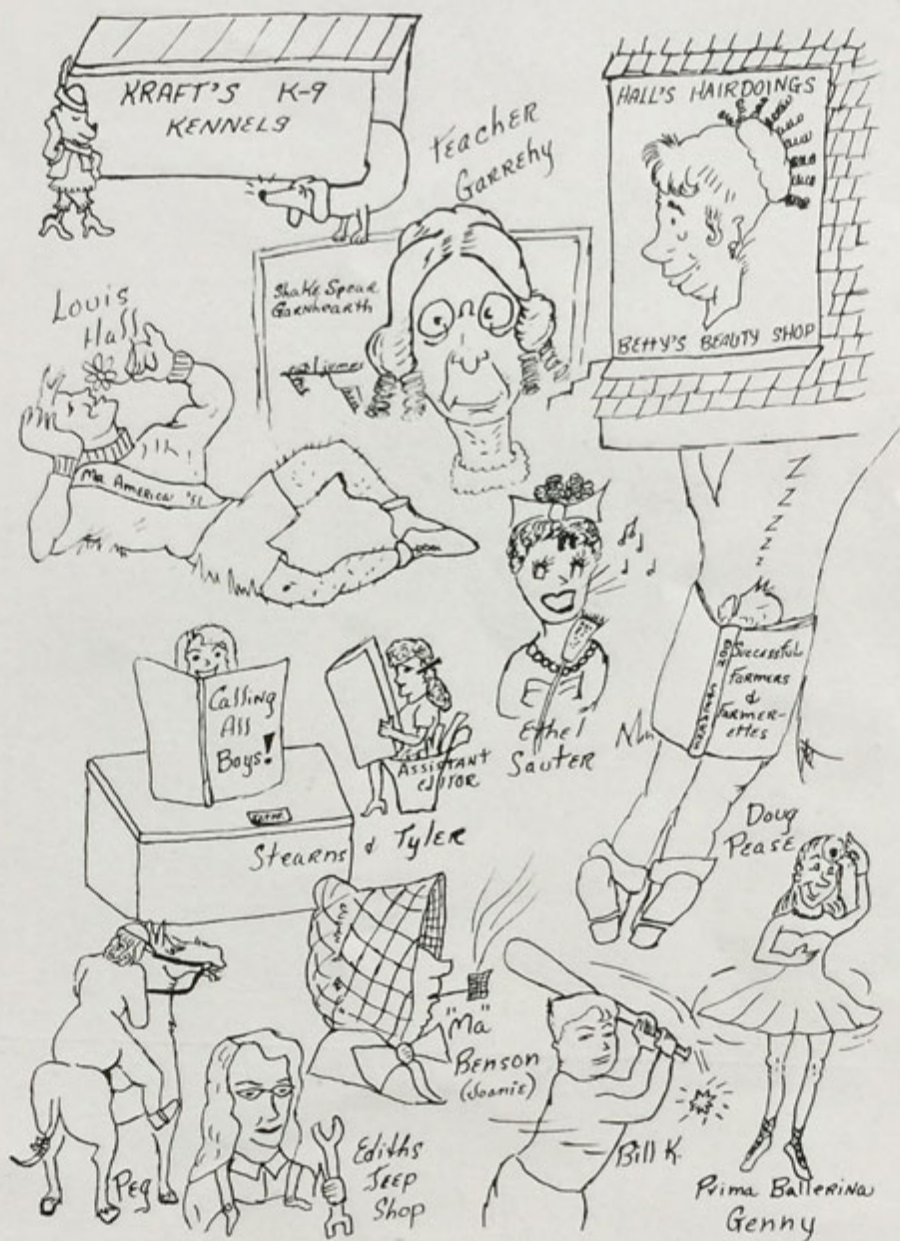 KRAFT'S K-9
KENNELS
Teacher
Garrehy
HALL'S HAIRDOINGS
BETTY'S BEAUTY SHOP
Shake Spear
Garnhearth
Louis
Hall
Mr. America '51
Z Z Z Z Z Z
Successful
Farmers
&
Farmer-
ettes
Calling
All
Boys!
ASSISTANT
EDITOR
Stearns & Tyler
Ethel
Sauter
Doug
Pease
"Ma"
Benson
(Joanie)
Peg
Ediths
JEEP
Shop
Bill K.
Prima Ballerina
Genny